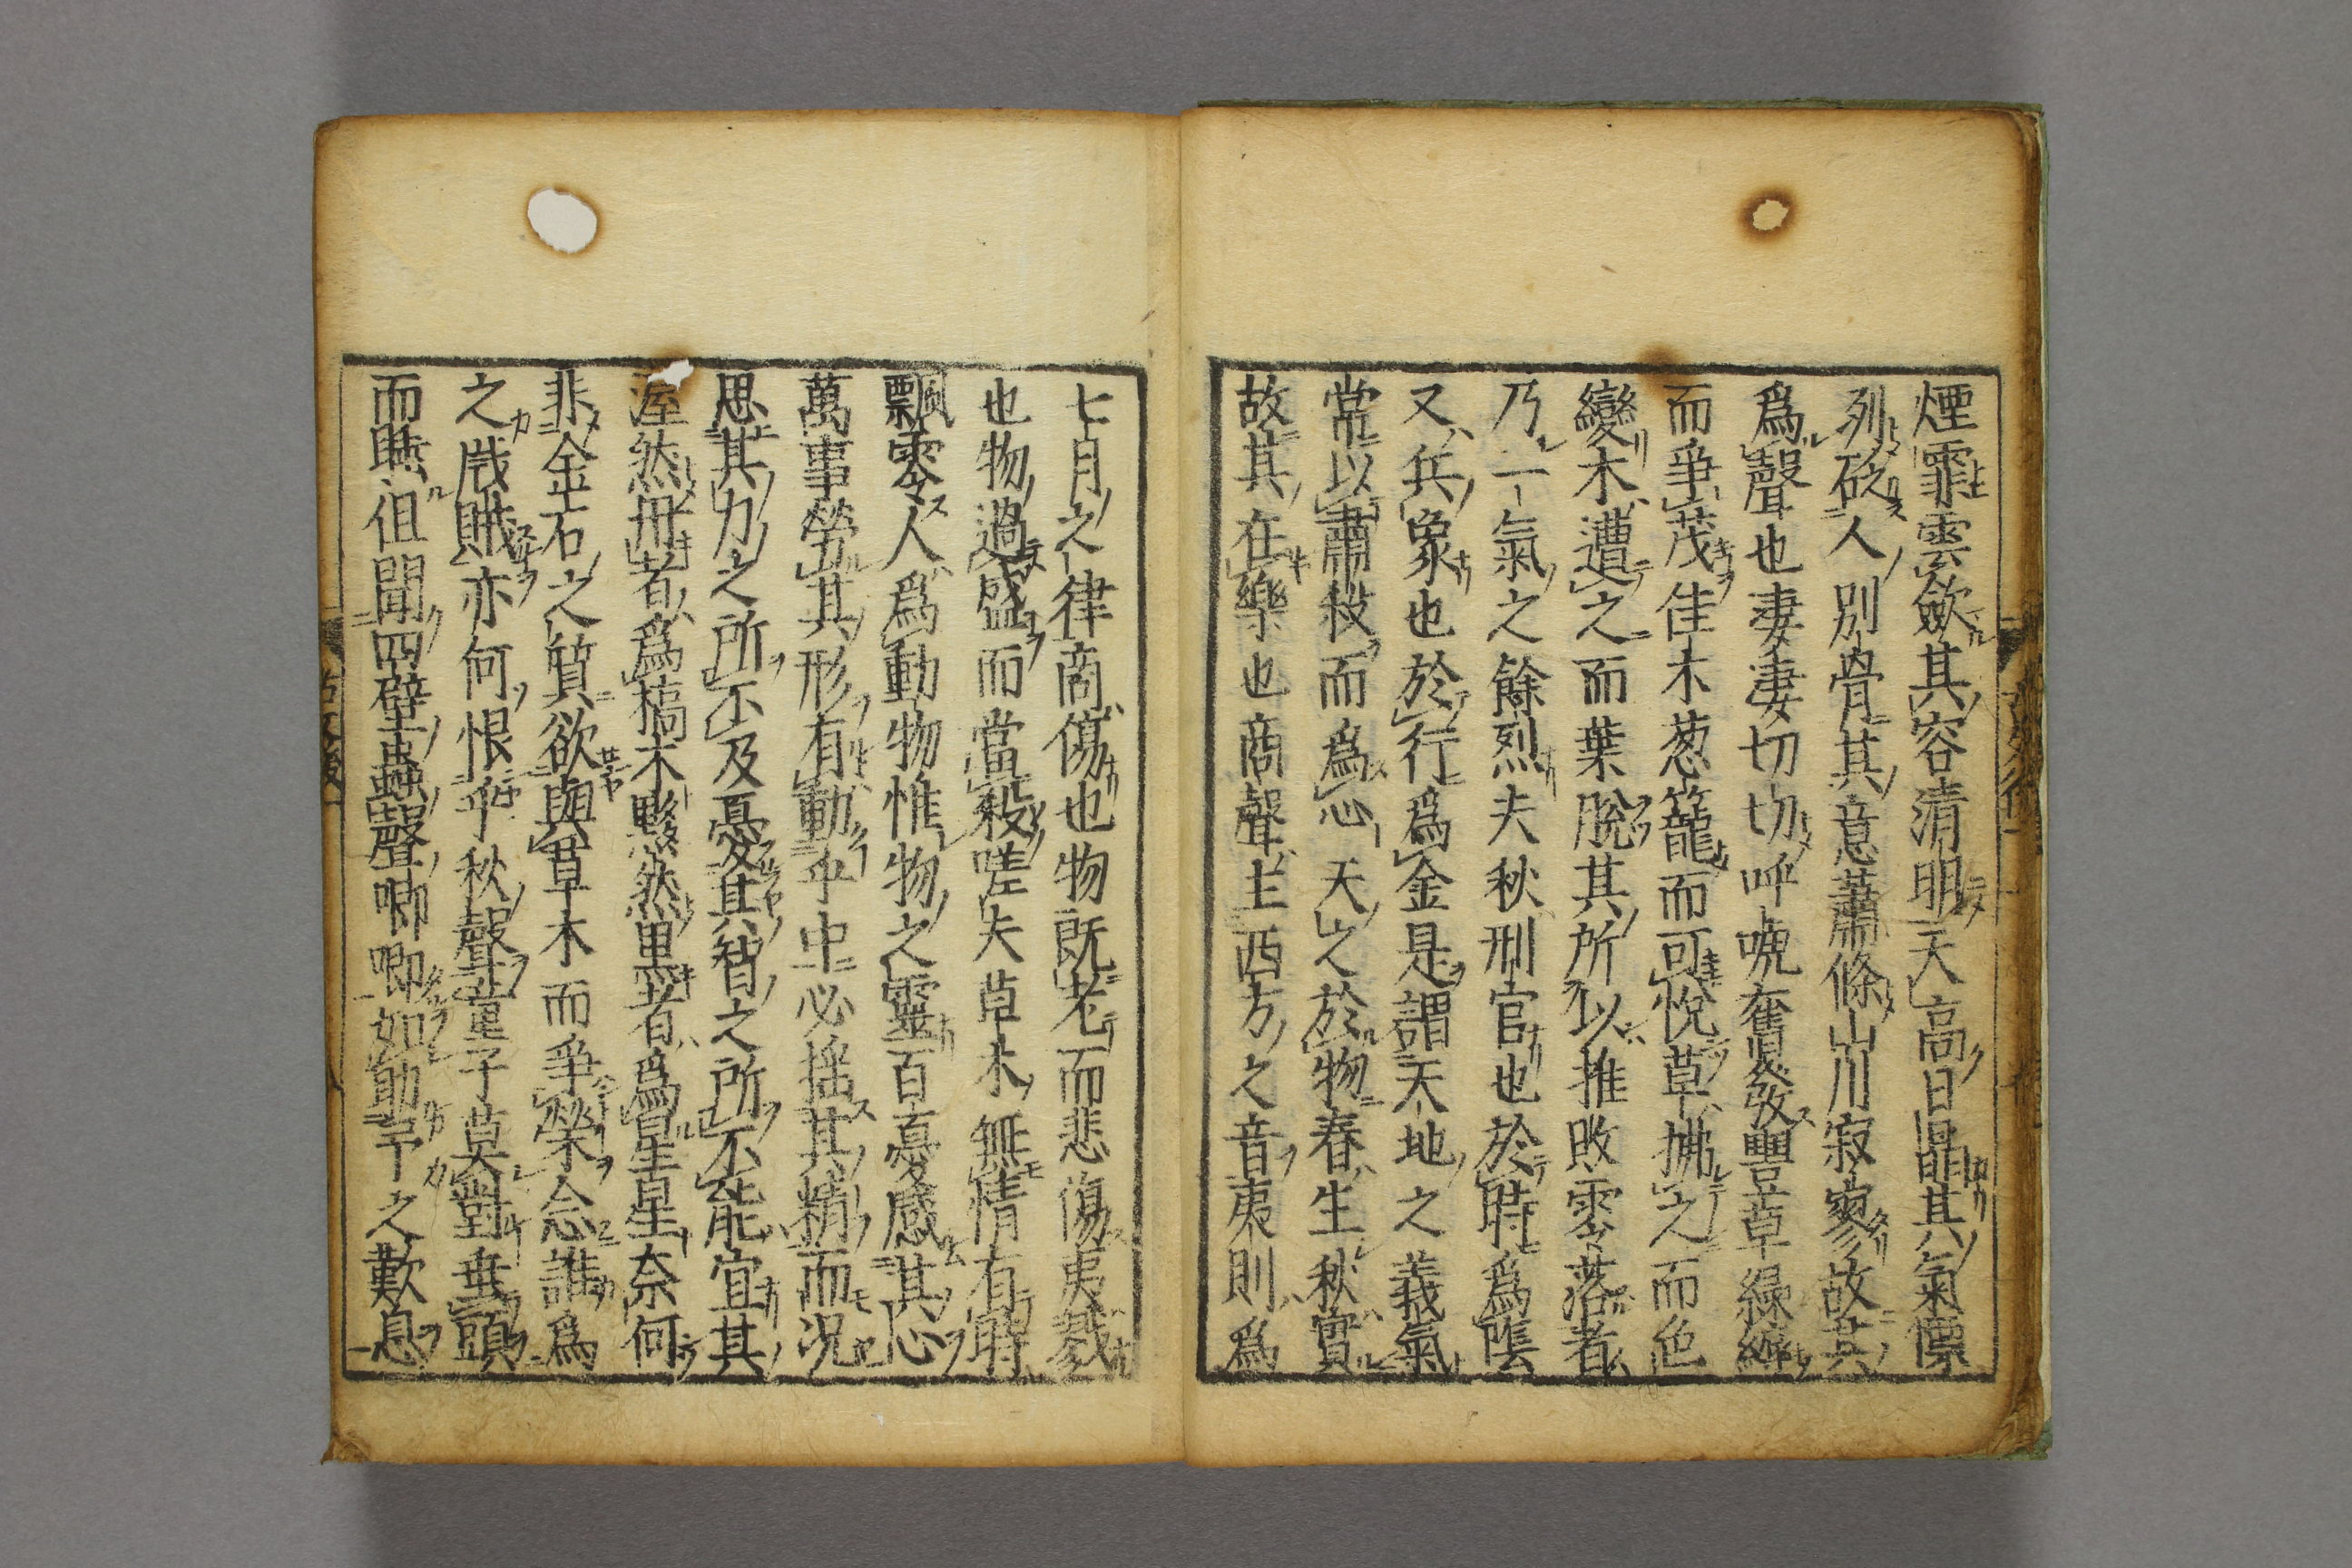 煙霏雲歛其容清明天高日晶其氣慄
列砭人別骨其意蕭條山川寂寥故其
爲聲也凄凄切切呼號奮發豐草綠縟
而爭茂佳木葱籠而可悅草拂之而色
變木遭之而葉脫其所以摧敗零落者
乃一氣之餘烈夫秋刑官也於時爲陰
又兵象也於行爲金是謂天地之義氣
常以肅殺而爲心天之於物春生秋實
故其在樂也商聲主西方之音夷則爲
七月之律商傷也物既老而悲傷夷戮
也物過盛而當殺嗟夫草木無情有時
飄零人爲動物惟物之靈百憂感其心
萬事勞其形有動乎中必搖其精而況
思其力之所不及憂其智之所不能宜其
渥然丹者爲槁木黟然黒者爲星星奈何
非金石之質欲與草木而爭榮念誰爲
之戕賊亦何恨乎秋聲童子莫對垂頭
而睡徂聞四壁蟲聲唧唧如助予之歎息